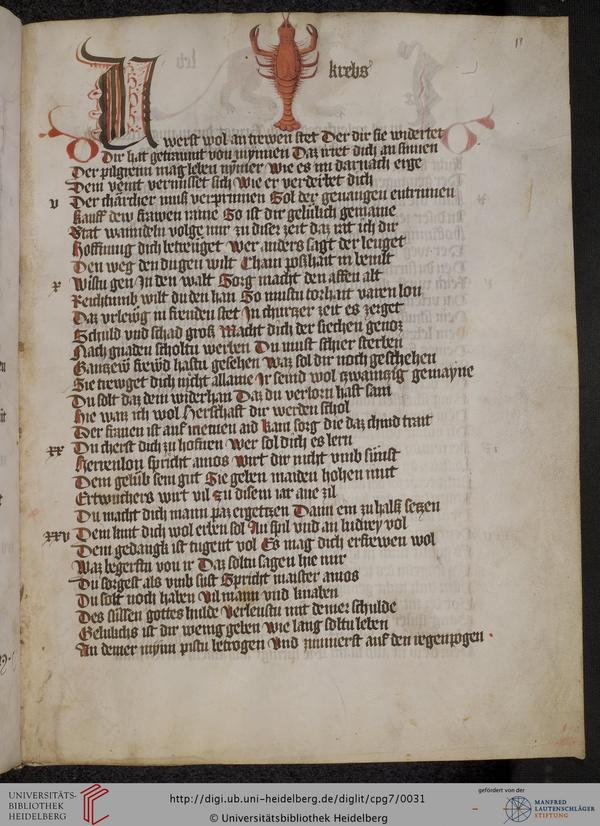 11
krebs
U werst wol an trewen stet Der dir sie widertet
Dir hat getraumt von mynnen Daz wiet dich an sinnen
Der pilgreim mag leben nymer Wie es im darnach erge
Dem veint vermisset sich Wie er verderbet dich
v Der charcher muß verprinnen Sol der genangen entrinnen
kauff dew frawen raine So ist dir gelüklich gemaine
Stat wanndeln volge mir zu diser zeit daz rat ich dir
Hoffnung dich betreuget Wer anders sagt der leuget
Den weg den du gen wilt Chain poßhait in bevilt
x Wiltu gen In den walt Sorg macht den affen alt
Reichtumb wilt du den han So mustu torhait varen lon
Daz vrlewg in freuden stet In churtzer zeit es zerget
Schuld vnd schad groß Macht dich der siechen genoz
Nach gnaden scholtu werben Du must schier sterben
Gantzew frewd hastu gesehen Waz sol dir noch geschehen
Sie trewget dich nicht allaine Ir seind wol tzwaintzig gemayne
Du solt daz dein widerhan Daz du verlorn hast sam
Hie waz ich wol Herschaft dir werden schol
Der frauen ist auf metuen aid kain sorg die daz chind trait
xx Du cherst dich zu hofnen Wer sol dich es lern
Herrenlon spricht amos Wirt dir nicht vmb sunst
Dem gelüb sein gut Sie geben maiden hohen mut
Ertwuchers wirt vil Zu disem iar ane zil
Du macht dich mann paz ergetzen Dann ein zu halß setzen
xxv Dem kint dich wol erben sol An spil vnd an ludrey vol
Dem gedangk ist tugent vol Es mag dich erfrewen wol
Waz begerstu von ir Daz soltu sagen hie mir
Du sorgest als vmb sust Spricht maister amos
Du solt noch haben Vil mann vnd knaben
Des süssen gottes hulde Verleustu mit deiner schulde
Gelukchs ist dir wenig geben Wie lang soltu leben
An deiner mynn pistu betrogen Vnd zimmerst auf den regenpogen
UNIVERSITÄTS-
BIBLIOTHEK
HEIDELBERG
http://digi.ub.uni-heidelberg.de/diglit/cpg7/0031
© Universitätsbibliothek Heidelberg
gefördert von der
MANFRED
LAUTENSCHLÄGER
STIFTUNG